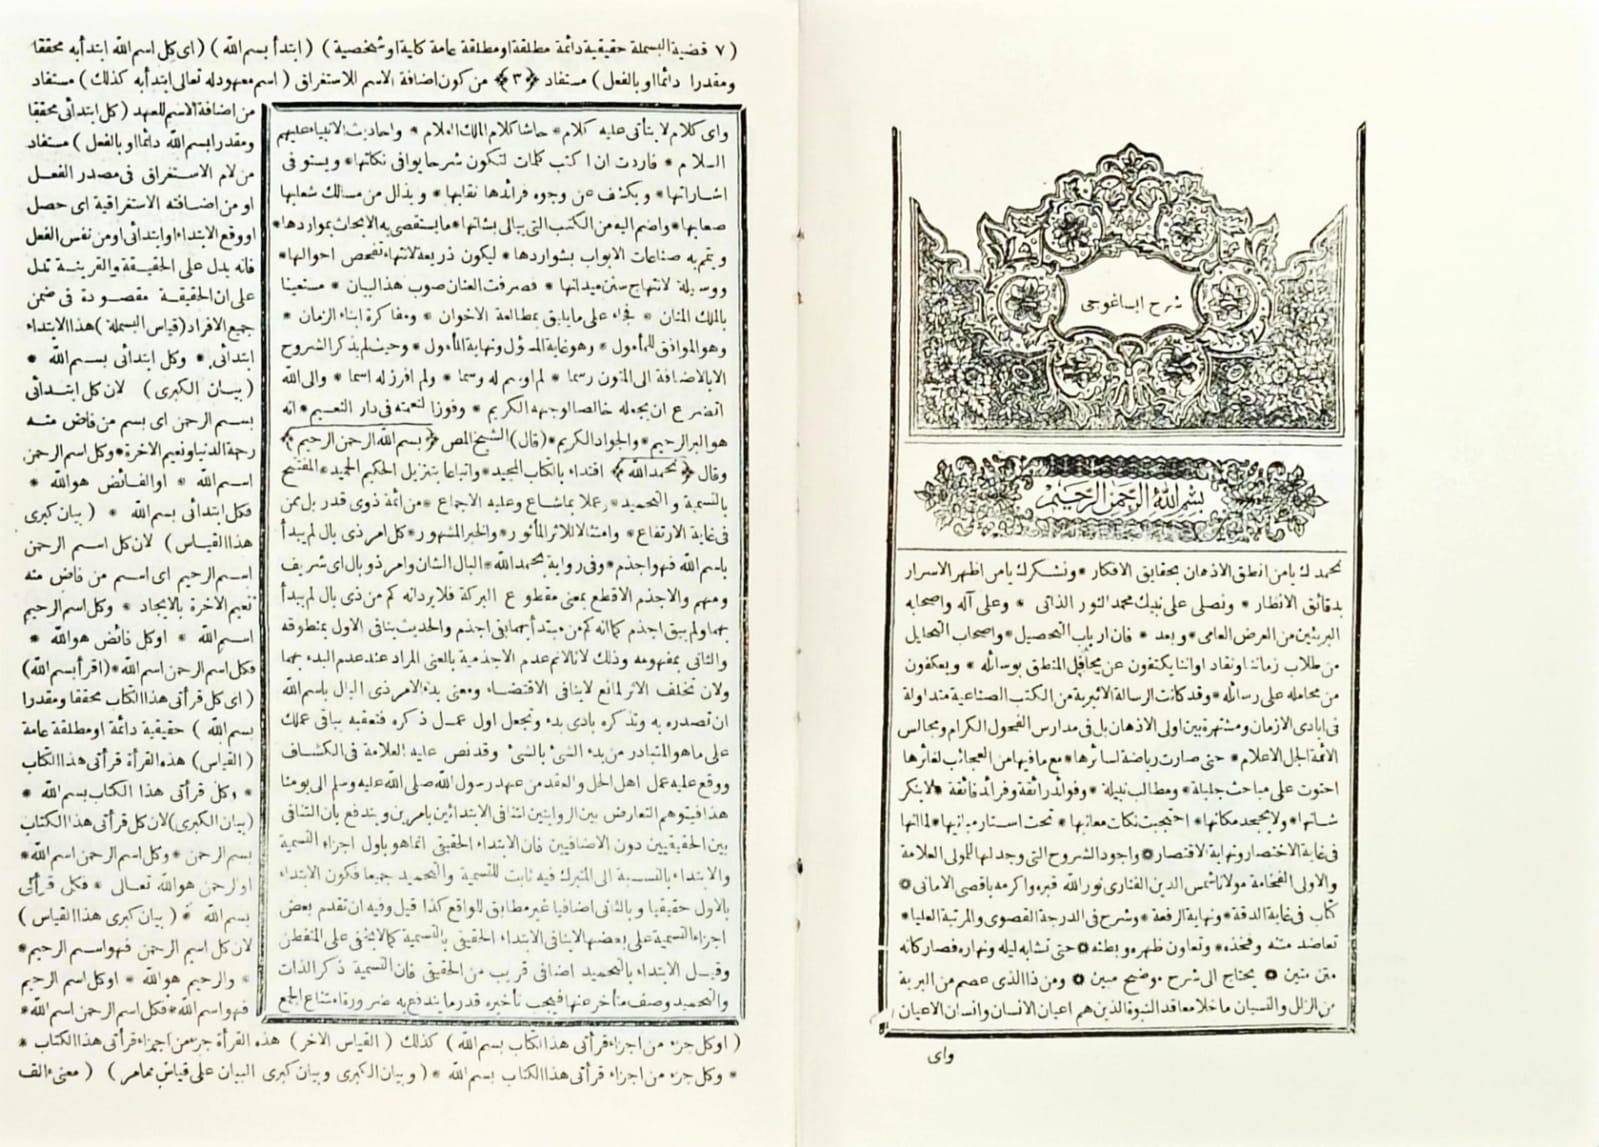 شرح ايساغوجى
بسم الله الرحمن الرحيم
نحمدك يا من انطق الاذهان بحقايق الافكار * ونشكرك يا من اظهر الاسرار
بدقائق الانظار * ونصلى على نبيك محمد النور الذاتى * وعلى آله واصحابه
البريئين من العرض العامى * وبعد * فان ارباب التحصيل * واصحاب التحايل
من طلاب زماننا ونقاد اواننا يكتفون عن محافل المنطق بوسائله * ويعكفون
من محامله على رسائله * وقد كانت الرسالة الاثيرية من الكتب الصناعية متداولة
فى ايادى الازمان ومشتهرة بين اولى الاذهان بل فى مدارس الفحول الكرام ومجالس
الائمة الجل الاعلام * حتى صارت رياضة لسائرها * مع ما فيها من العجائب لغائرها
احتوت على مباحث جليلة * ومطالب نبيلة * وفوائد رائقة وفرائد فائقة * لا ينكر
شانها * ولا يجحد مكانها * احتجبت نكات معانيها * تحت استار مبانيها * لما انها
فى غاية الاختصار ونهاية الاقتصار * واجود الشروح التى وجد لها للمولى العلامة
والاولى الفخامة مولانا شمس الدين الفنارى نور الله قبره واكرمه باقصى الامانى *
كتاب فى غاية الدقة * ونهاية الرفعة * وشرح فى الدرجة القصوى والمرتبة العليا *
تعاضد متنه وفخذه * وتعاون ظهره وبطنه * حتى تشابه ليله ونهاره فصار كانه
متن متين * يحتاج الى شرح موضح مبين * ومن ذا الذى عصم من البرية
من الزلل والنسيان ما خلا معاقد النبوة الذين هم اعيان الانسان وانسان الاعيان
واى
( ٧ قضية البسملة حقيقية دائمة مطلقة او مطلقة عامة كلية او شخصية ) ( ابتدأ بسم الله ) ( اى كل اسم الله ابتدأ به محققا
ومقدرا دائما او بالفعل ) مستفاد ﴿٣﴾ من كون اضافة الاسم للاستغراق ( اسم معهود له تعالى ابتدأ به كذلك ) مستفاد
من اضافة الاسم للعهد ( كل ابتدائى محققا
ومقدرا بسم الله دائما او بالفعل ) مستفاد
من لام الاستغراق فى مصدر الفعل
او من اضافته الاستغراقية اى حصل
او وقع الابتداء او ابتدائى او من نفس الفعل
فانه يدل على الحقيقة والقرينة تدل
على ان الحقيقة مقصودة فى ضمن
جميع الافراد ( قياس البسملة ) هذا الابتداء
ابتدائى * وكل ابتدائى بسم الله *
( بيان الكبرى ) لان كل ابتدائى
بسم الرحمن اى بسم من فاض منه
رحمة الدنيا ونعيم الاخرة * وكل اسم الرحمن
اسم الله * او الفائض هو الله *
فكل ابتدائى بسم الله * ( بيان كبرى
هذا القياس ) لان كل اسم الرحمن
اسم الرحيم اى اسم من فاض منه
نعيم الاخرة بالايجاد * وكل اسم الرحيم
اسم الله * او كل فائض هو الله *
فكل اسم الرحمن اسم الله * ( اقرأ بسم الله )
( اى كل قرأتى هذا الكتاب محققا ومقدرا
بسم الله ) حقيقية دائمة او مطلقة عامة
( القياس ) هذه القرأة قرأتى هذا الكتاب
* وكل قرأتى هذا الكتاب بسم الله *
( بيان الكبرى ) لان كل قرأتى هذا الكتاب
بسم الرحمن * وكل اسم الرحمن اسم الله *
او الرحمن هو الله تعالى * فكل قرأتى
بسم الله * ( بيان كبرى هذا القياس )
لان كل اسم الرحمن فهو اسم الرحيم *
* والرحيم هو الله * او كل اسم الرحيم
فهو اسم الله * فكل اسم الرحمن اسم الله *
( او كل جزء من اجزاء قرأتى هذا الكتاب بسم الله ) كذلك ( القياس الاخر ) هذه القرأة جزء من اجزاء قرأتى هذا الكتاب *
* وكل جزء من اجزاء قرأتى هذا الكتاب بسم الله * ( وبيان الكبرى وبيان كبرى البيان على قياس ما مر ) ( معنى الف
واى كلام لا يتأتى عليه كلام * حاشا كلام الملك العلام * واحاديث الانبياء عليهم
السلام * فاردت ان اكتب كلمات لتكون شرحا يوافى نكاتها * ويستوفى
اشاراتها * ويكشف عن وجوه فرائدها نقابها * ويذلل من مسالك شعابها
صعابها * واضم اليه من الكتب التى يبالى بشانها * ما يستقصى به الابحاث بمواردها *
ويتم به صناعات الابواب بشواردها * ليكون ذريعة لانتهاء تفحص احوالها *
ووسيلة لانتهاج سنن ميدانها * فصرفت العنان صوب هذا البيان * مستعينا
بالملك المنان * فجاء على ما يليق بمطالعة الاخوان * ومفاكرة ابناء الزمان *
وهو الموافق للمأمول * وهو غاية المسؤل ونهاية المأمول * وحيث لم يذكر الشروح
الا بالاضافة الى المتون رسما * لم اوسم له وسما * ولم افرز له اسما * والى الله
اتضرع ان يجعله خالصا لوجهه الكريم * وفوزا لنعمته فى دار النعيم * انه
هو البر الرحيم * والجواد الكريم * ( قال ) الشيخ المص ﴿ بسم الله الرحمن الرحيم ﴾
وقال ﴿ نحمد الله ﴾ اقتداء بالكتاب المجيد * واتباعا بتنزيل الحكيم الحميد * المفتتح
بالتسمية والتحميد * وعملا بما شاع وعليه الاجماع * من ائمة ذوى قدر بل ممن
فى غاية الارتفاع * وامتثالا للاثر المأثور * والخبر المشهور * كل امر ذى بال لم يبدأ
باسم الله فهو اجذم * وفى رواية بحمد الله * البال الشان وامر ذو بال اى شريف
ومهم والاجذم الاقطع بمعنى مقطوع البركة فلا يرد انه كم من ذى بال لم يبدأ
بهما ولم يبق اجذم كما انه كم من مبتدأ بهما بقى اجذم والحديث ينافى الاول بمنطوقه
والثانى بمفهومه وذلك لانا لانم عدم الاجذمية بالمعنى المراد عند عدم البدء بهما
ولان تخلف الاثر لمانع لا ينافى الاقتضاء ومعنى بدء الامر ذى البال باسم الله
ان تصدره به وتذكره بادى بدء وتجعل اول عمل ذكره فتعقبه بباقى عملك
على ما هو المتبادر من بدء الشئ بالشئ وقد نص عليه العلامة فى الكشاف
ووقع عليه عمل اهل الحل والعقد من عهد رسول الله صلى الله عليه وسلم الى يومنا
هذا فيتوهم التعارض بين الروايتين لتنافى الابتدائين بامرين ويندفع بان التنافى
بين الحقيقيين دون الاضافيين فان الابتداء الحقيقى انما هو باول اجزاء التسمية
والابتداء بالنسبة الى المتبرك فيه ثابت للتسمية والتحميد جميعا فكون الابتداء
بالاول حقيقيا وبالثانى اضافيا غير مطابق للواقع كذا قيل وفيه ان تقدم بعض
اجزاء التسمية على بعضها لا ينافى الابتداء الحقيقى بالتسمية كما لا يخفى على المتفطن
وقيل الابتداء بالتحميد اضافى قريب من الحقيقى فان التسمية ذكر الذات
والتحميد وصف متأخر عنها فيجب تأخيره قدر ما يندفع به ضرورة امتناع الجمع